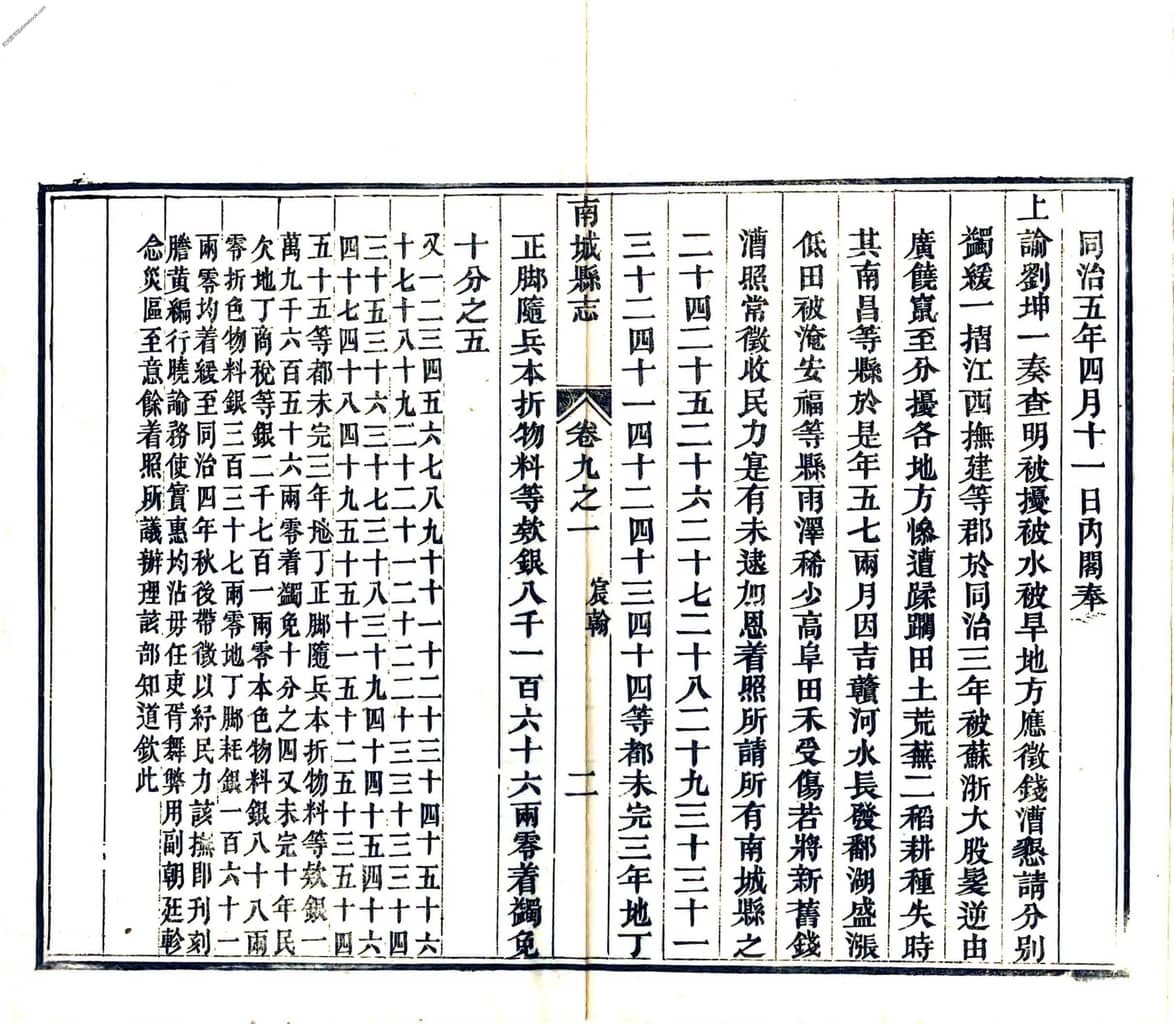 同治五年四月十一日內閣奉
上諭劉坤一奏查明被擾被水被旱地方應徵錢漕懇請分別
蠲緩一摺江西撫建等郡於同治三年被蘇浙大股髮逆由
廣饒竄至分擾各地方慘遭蹂躪田土荒蕪二稻耕種失時
其南昌等縣於是年五七兩月因吉贛河水長發鄱湖盛漲
低田被淹安福等縣雨澤稀少高阜田禾受傷若將新舊錢
漕照常徵收民力寔有未逮加恩着照所請所有南城縣之
二十四二十五二十六二十七二十八二十九三十三十一
三十二四十一四十二四十三四十四等都未完三年地丁
南城縣志
卷九之一
宸翰
二
正脚隨兵本折物料等欵銀八千一百六十六兩零着蠲免
十分之五
又一二三四五六七八九十十一十二十三十四十五十六
十七十八十九二十二十一二十二二十三三十三三十四
三十五三十六三十七三十八三十九四十四十五四十六
四十七四十八四十九五十五十一五十二五十三五十四
五十五等都未完三年地丁正脚隨兵本折物料等欵銀一
萬九千六百五十六兩零着蠲免十分之四又未完十年民
欠地丁商稅等銀二千七百一兩零本色物料銀八十八兩
零折色物料銀三百三十七兩零地丁脚耗銀一百六十一
兩零均着緩至同治四年秋後帶徵以紓民力該撫卽刊刻
膽黃編行曉諭務使實惠均沾毋任吏胥舞弊用副朝廷軫
念災區至意餘着照所議辦理該部知道欽此